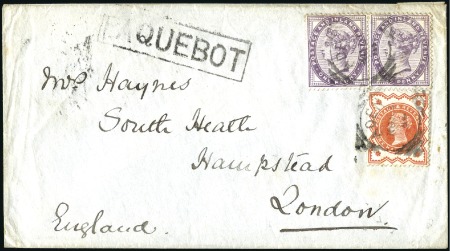 PAQUEBOT
Mrs Haynes
South Heath
Hampstead
London.
England.